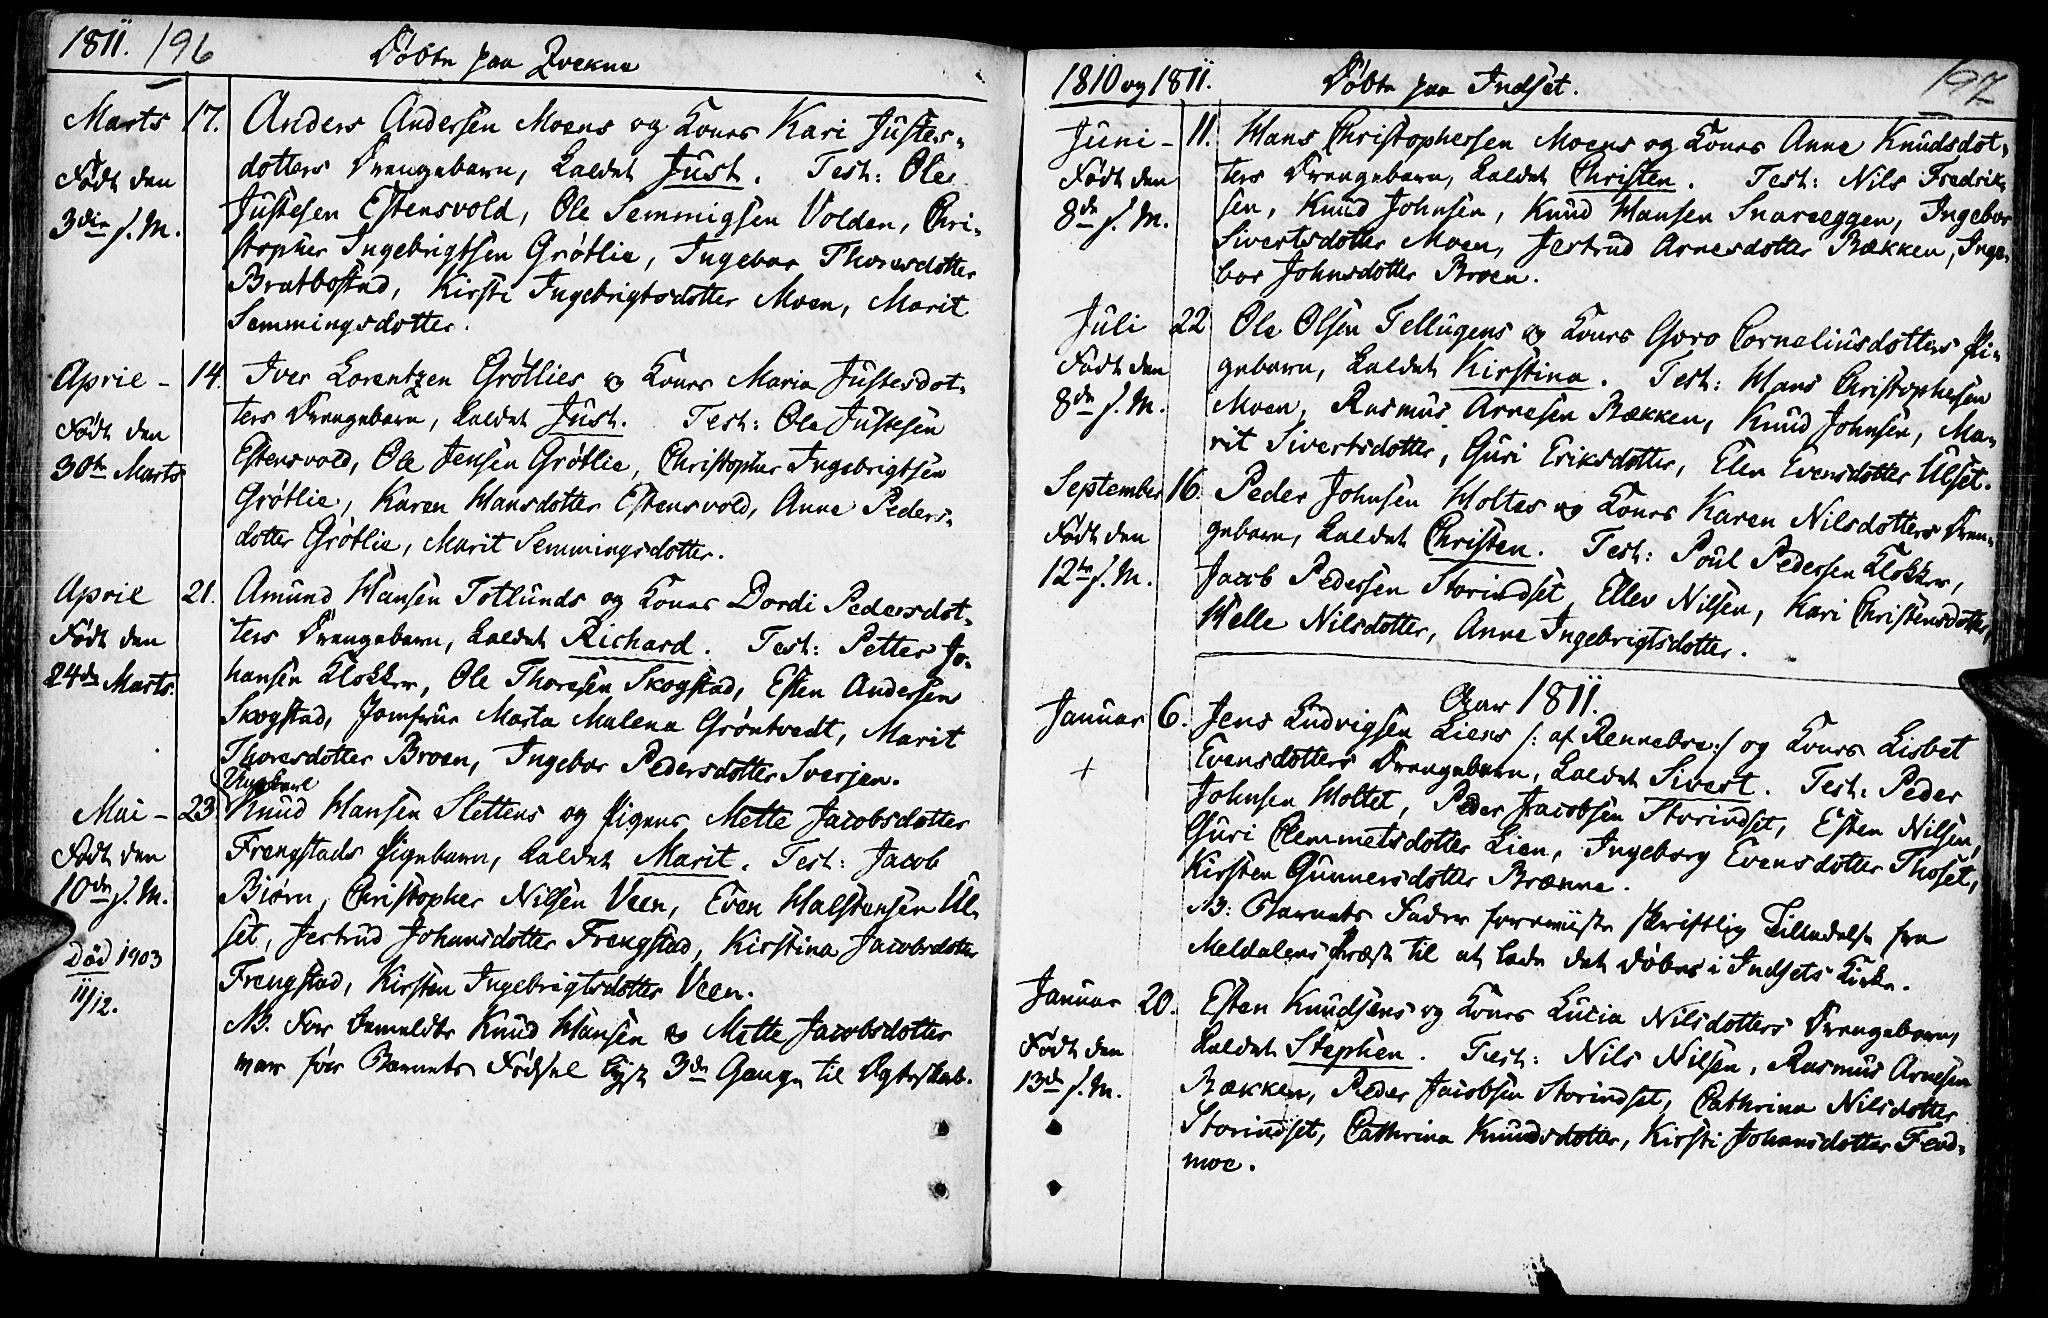 1811. 196 Døbte paa Qvekne
Marts 17. Anders Andersen Moens og Kones Kari Justes-
Født den dotters Drengebarn, kaldet Just. Test: Ole
3die s. M. Justesen Estensvold, Ole Semmigsen Volden, Chri-
stopher Ingebrigtsen Grøtlie, Ingebor Thoresdotter
Bratbostad, Kirsti Ingebrigtsdotter Moen, Marit
Semmingsdotter.
April - 14. Iver Lorentzen Grøtlies og Kones Maria Justesdot-
Født den ters Drengebarn, kaldet Just. Test: Ole Justesen
30te Marts Estensvold, Ole Jensen Grøtlie, Christopher Ingebrigtsen
Grøtlie, Karen Hansdotter Estensvold, Anne Peders-
dotter Grøtlie, Marit Semmingsdotter.
April 21. Amund Hansen Totlunds og Kones Dordi Pedersdot-
Født den ters Drengebarn, kaldet Richard. Test: Petter Jo-
24de Marts. hansen Klokker, Ole Thoresen Skogstad, Esten Andersen
Skogstad, Jomfrue Marta Malena Grøntvedt, Marit
Thoresdotter Broen, Ingebor Pedersdotter Sverjen.
Ungkarl
Mai - 23. Knud Hansen Slettens og Pigens Mette Jacobsdotter
Født den Frengstads Pigebarn, kaldet Marit. Test: Jacob
10de s. M. Biørn, Christopher Nilsen Veen, Even Halstensen Ul-
Død 1903 set, Jertrud Johansdotter Frengstad, Kirstina Jacobsdotter
11/12. Frengstad, Kirsten Ingebrigtsdotter Veen.
NB. For bemeldte Knud Hansen og Mette Jacobsdotter
var før Barnets Fødsel lyst 3de Gange til Ægteskab.
1810 og 1811. Døbte paa Indset. 197
Juni - 11. Hans Christophersen Moens og Kones Anne Knudsdot-
Født den ters Drengebarn, kaldet Christen. Test: Nils Fredrik-
8de s. M. sen, Knud Johnsen, Knud Hansen Snareeggen, Ingebor
Sivertsdotter Moen, Jertrud Arnesdotter Rækken, Inge-
bor Johnsdotter Broen.
Juli 22 Ole Olsen Tellugens og Kones Goro Corneliusdotters Pi-
Født den gebarn, kaldet Kirstina. Test: Hans Christophersen
8de s. M. Moen, Rasmus Arnesen Rækken, Knud Johnsen, Ma-
rit Sivertsdotter, Guri Eriksdotter, Elen Evensdotter Ulset.
September 16. Peder Johnsen Holtes og Kones Karen Nilsdotters Dren-
Født den gebarn, kaldet Christen. Test: Poul Pedersen Klokker,
12te s. M. Jacob Pedersen Storindset, Ellev Nilsen, Kari Christensdotter,
Helle Nilsdotter, Anne Ingebrigtsdotter.
Aar 1811.
Januar 6. Jens Ludvigsen Liens /: af Rennebue :/ og Kones Lisbet
+ Evensdotters Drengebarn, kaldet Sivert. Test: Peder
Johnsen Holtet, Peder Jacobsen Storindset, Esten Nilsen,
Guri Clemmetsdotter Lien, Ingeborg Evensdotter Thoset,
Kirsten Gunnersdotter Brænne.
NB: Barnets Fader foreviiste skriftlig Tilladelse fra
Meldalens Præst til at lade det døbes i Indsets Kirke.
Januar 20. Esten Knudsens og Kones Lucia Nilsdotters Drengebarn,
Født den kaldet Stephen. Test: Nils Nilsen, Rasmus Arnesen
13de s. M. Rækken, Peder Jacobsen Storindset, Cathrina Nilsdotter
Storindset, Cathrina Knudsdotter, Kirsti Johansdotter Fend-
moe.